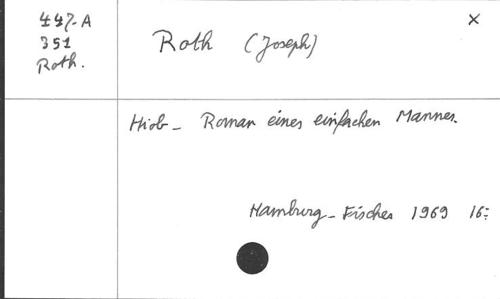 447-A
351
Roth.
Roth (Joseph)
x
Hiob - Roman eines einfachen Mannes.
Hamburg - Fischer 1969 16: